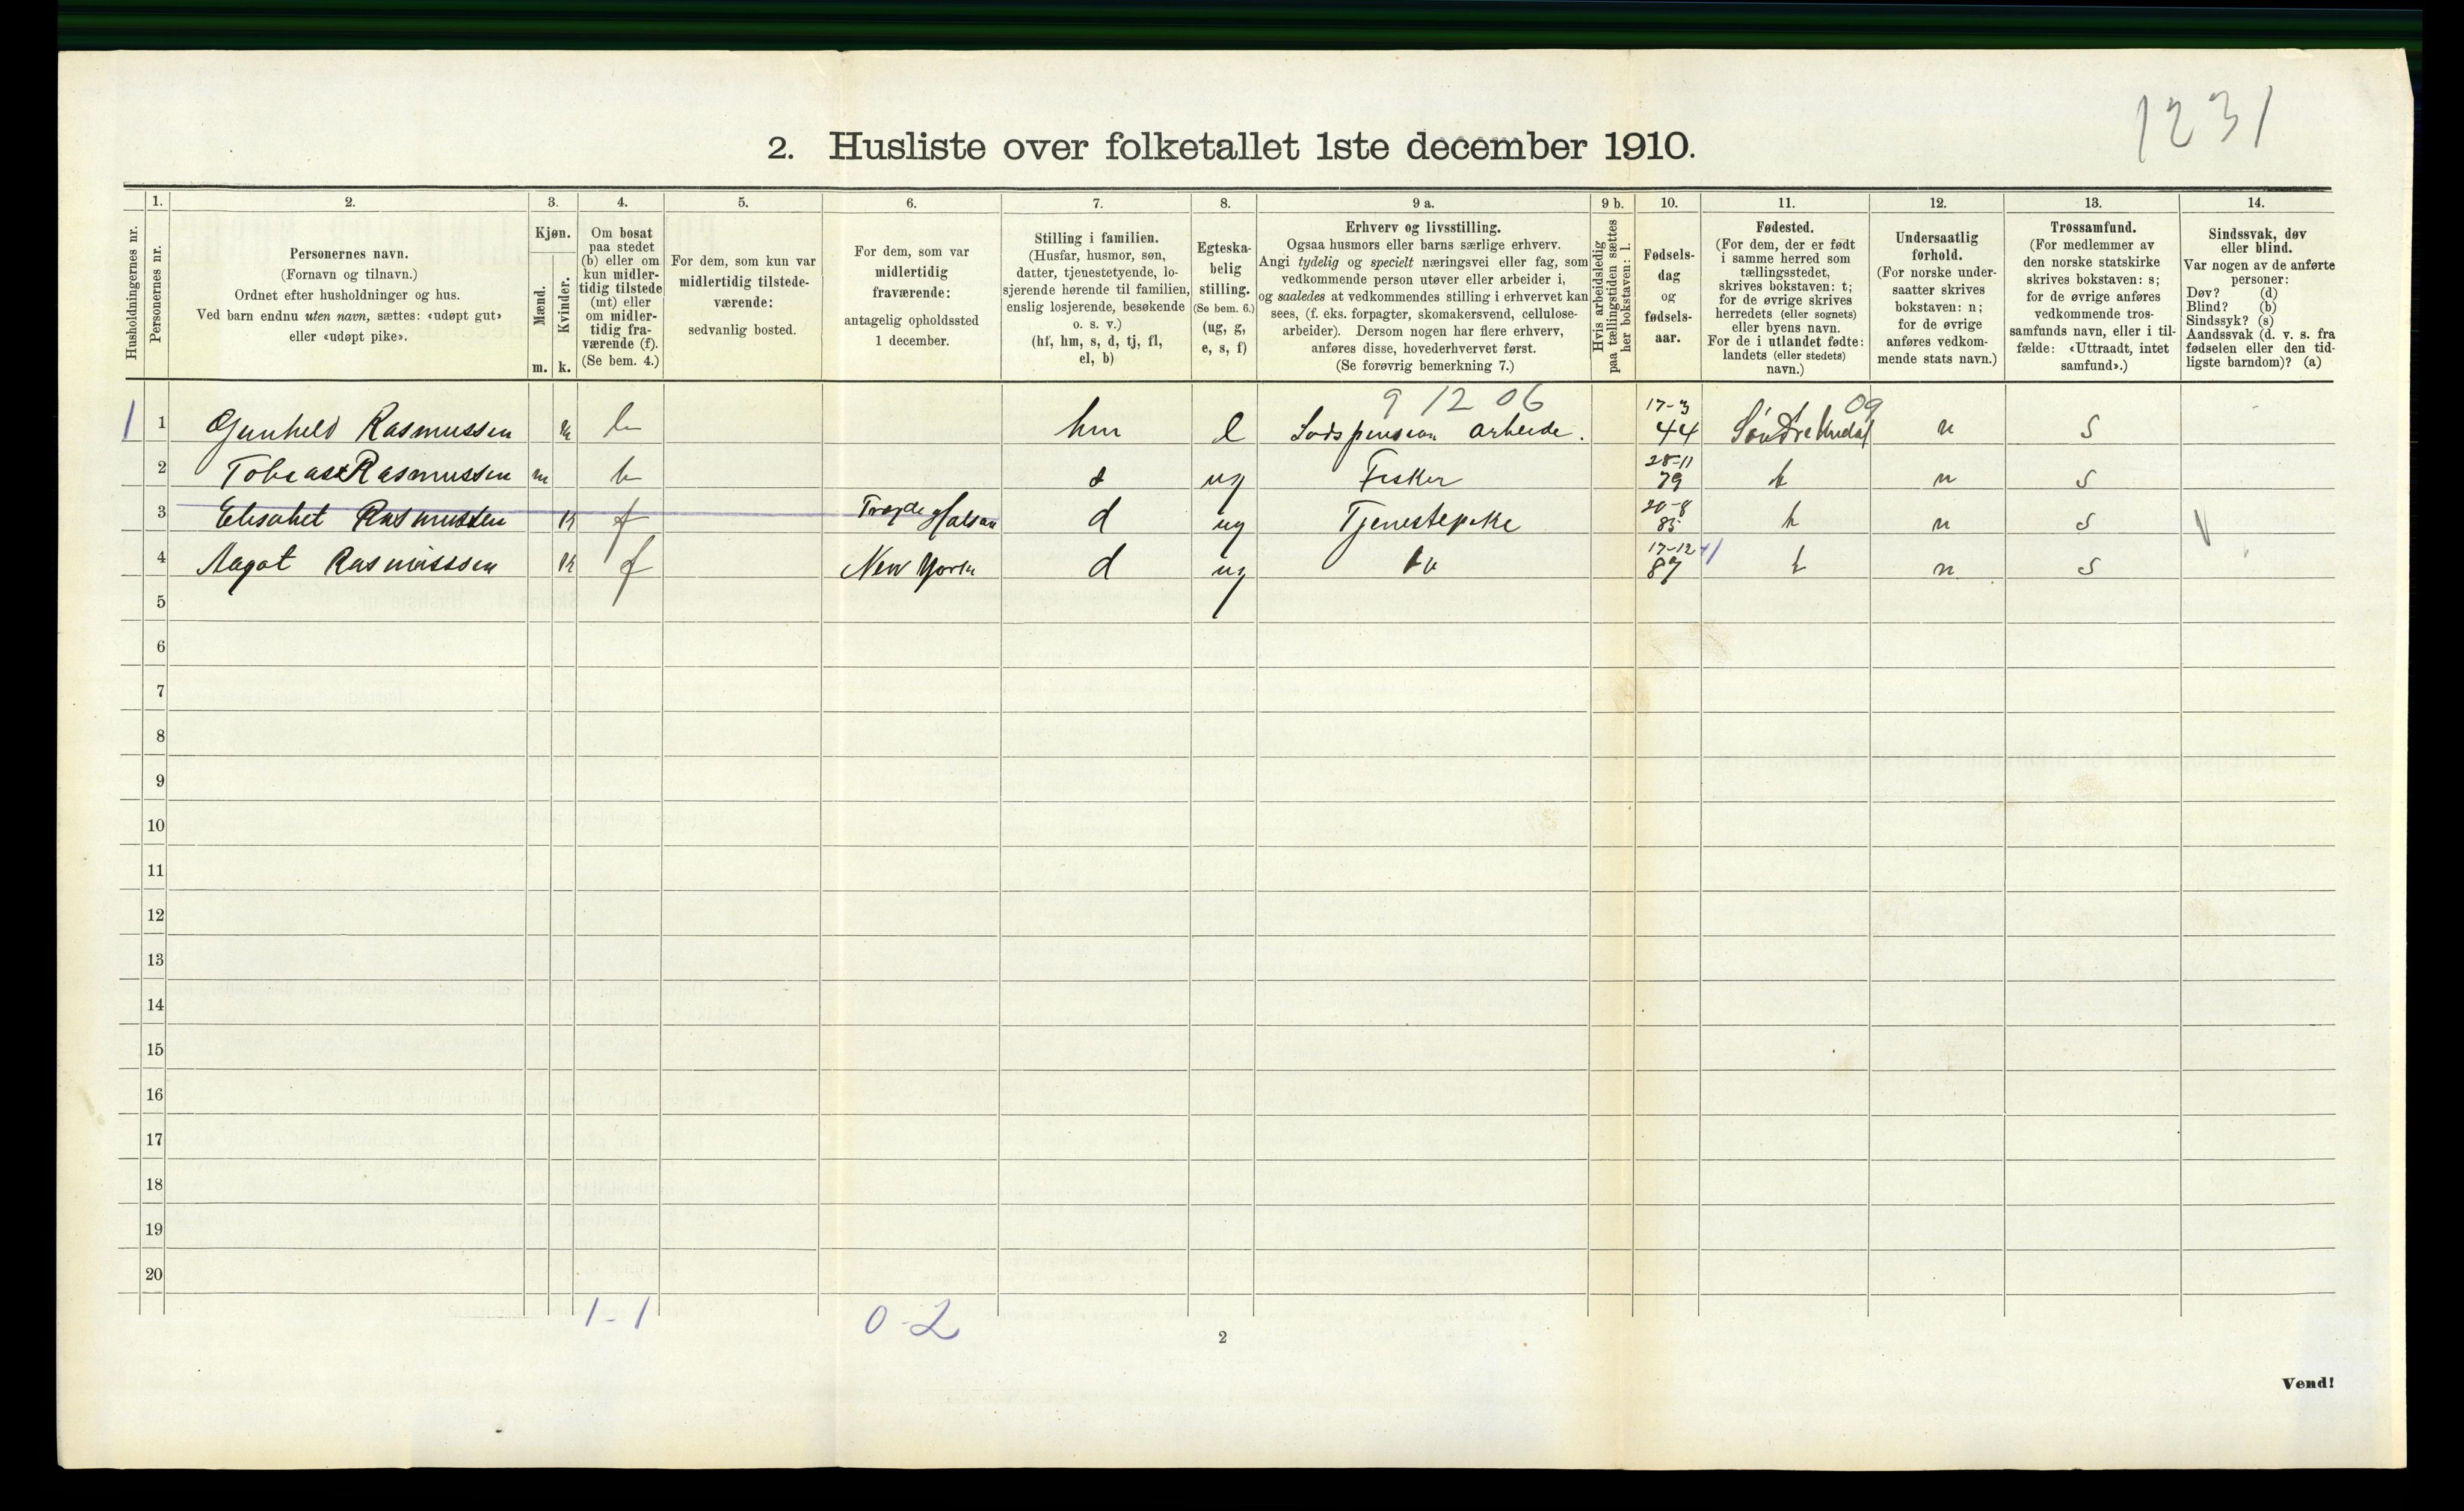 1231
2. Husliste over folketallet 1ste december 1910.
Husholdningernes nr.
1.
Personernes nr.
2.
Personernes navn.
(Fornavn og tilnavn.)
Ordnet efter husholdninger og hus.
Ved barn endnu uten navn, sættes: «udøpt gut»
eller «udøpt pike».
3.
Kjøn.
Mænd.
m.
Kvinder.
k.
4.
Om bosat
paa stedet
(b) eller om
kun midler-
tidig tilstede
(mt) eller
om midler-
tidig fra-
værende (f).
(Se bem. 4.)
5.
For dem, som kun var
midlertidig tilstede-
værende:
sedvanlig bosted.
6.
For dem, som var
midlertidig
fraværende:
antagelig opholdssted
1 december.
7.
Stilling i familien.
(Husfar, husmor, søn,
datter, tjenestetyende, lo-
sjerende hørende til familien,
enslig losjerende, besøkende
o. s. v.)
(hf, hm, s, d, tj, fl,
el, b)
8.
Egteska-
belig
stilling.
(Se bem. 6.)
(ug, g,
e, s, f)
9 a.
Erhverv og livsstilling.
Ogsaa husmors eller barns særlige erhverv.
Angi tydelig og specielt næringsvei eller fag, som
vedkommende person utøver eller arbeider i,
og saaledes at vedkommendes stilling i erhvervet kan
sees, (f. eks. forpagter, skomakersvend, cellulose-
arbeider). Dersom nogen har flere erhverv,
anføres disse, hovederhvervet først.
(Se forøvrig bemerkning 7.)
9 b.
Hvis arbeidsledig
paa tællingstiden sættes
her bokstaven: l.
10.
Fødsels-
dag
og
fødsels-
aar.
11.
Fødested.
(For dem, der er født
i samme herred som
tællingsstedet,
skrives bokstaven: t;
for de øvrige skrives
herredets (eller sognets)
eller byens navn.
For de i utlandet fødte:
landets (eller stedets)
navn.)
12.
Undersaatlig
forhold.
(For norske under-
saatter skrives
bokstaven: n;
for de øvrige
anføres vedkom-
mende stats navn.)
13.
Trossamfund.
(For medlemmer av
den norske statskirke
skrives bokstaven: s;
for de øvrige anføres
vedkommende tros-
samfunds navn, eller i til-
fælde: «Uttraadt, intet
samfund».)
14.
Sindssvak, døv
eller blind.
Var nogen av de anførte
personer:
Døv? (d)
Blind? (b)
Sindssyk? (s)
Aandssvak (d. v. s. fra
fødselen eller den tid-
ligste barndom)? (a)
9 12 06 17-3 09
1 1 Gunheld Rasmussen k b hm e Lods pension arbeide. 44 n s
28-11
2 Tobias Rasmussen m b s ug Fisker 79 t n s
20-8
3 Elisabet Rasmussen k f d ug Tjenestepike 85 t n s
17-12
4 Aagot Rasmussen k f New York d ug 87 t n s
5
6
7
8
9
10
11
12
13
14
15
16
17
18
19
20
1-1 0-2
2
Vend!